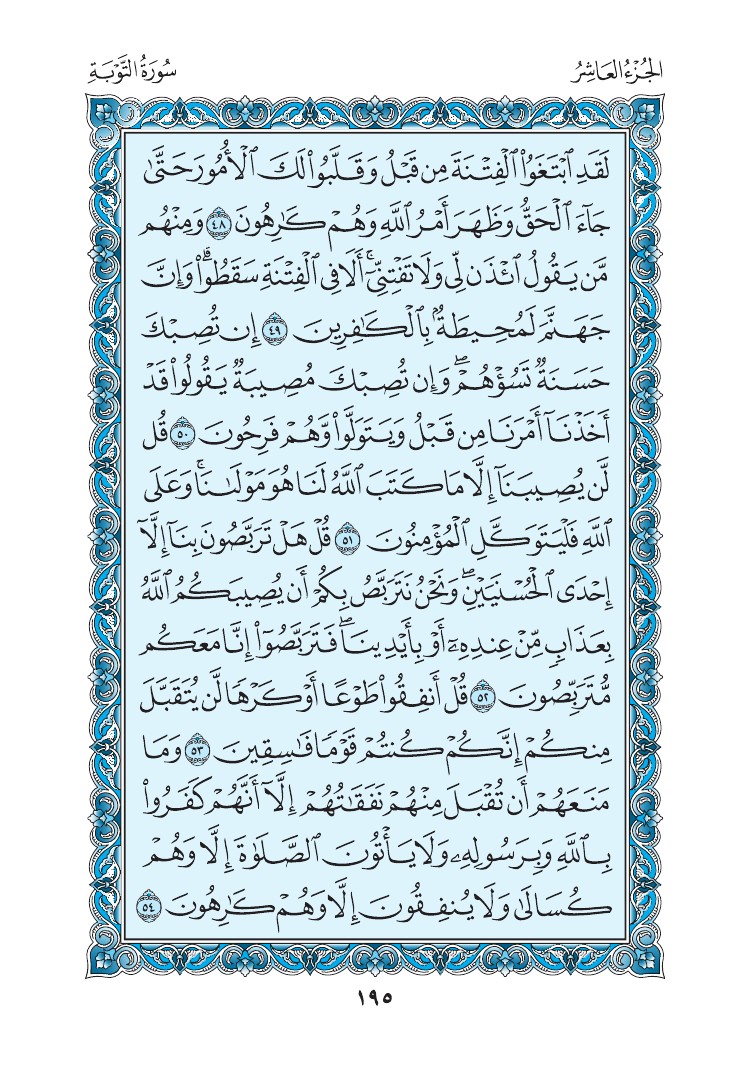 الجُزْءُ العَاشِرُ
سُورَةُ التَّوْبَةِ
لَقَدِ ٱبْتَغَوُا۟ ٱلْفِتْنَةَ مِن قَبْلُ وَقَلَّبُوا۟ لَكَ ٱلْأُمُورَ حَتَّىٰ
جَآءَ ٱلْحَقُّ وَظَهَرَ أَمْرُ ٱللَّهِ وَهُمْ كَـٰرِهُونَ ٤٨ وَمِنْهُم
مَّن يَقُولُ ٱئْذَن لِّى وَلَا تَفْتِنِّىٓ ۚ أَلَا فِى ٱلْفِتْنَةِ سَقَطُوا۟ ۗ وَإِنَّ
جَهَنَّمَ لَمُحِيطَةٌۢ بِٱلْكَـٰفِرِينَ ٤٩ إِن تُصِبْكَ
حَسَنَةٌ تَسُؤْهُمْ ۖ وَإِن تُصِبْكَ مُصِيبَةٌ يَقُولُوا۟ قَدْ
أَخَذْنَآ أَمْرَنَا مِن قَبْلُ وَيَتَوَلَّوا۟ وَّهُمْ فَرِحُونَ ٥٠ قُل
لَّن يُصِيبَنَآ إِلَّا مَا كَتَبَ ٱللَّهُ لَنَا هُوَ مَوْلَىٰنَا ۚ وَعَلَى
ٱللَّهِ فَلْيَتَوَكَّلِ ٱلْمُؤْمِنُونَ ٥١ قُلْ هَلْ تَرَبَّصُونَ بِنَآ إِلَّآ
إِحْدَى ٱلْحُسْنَيَيْنِ ۖ وَنَحْنُ نَتَرَبَّصُ بِكُمْ أَن يُصِيبَكُمُ ٱللَّهُ
بِعَذَابٍ مِّنْ عِندِهِۦٓ أَوْ بِأَيْدِينَا ۖ فَتَرَبَّصُوٓا۟ إِنَّا مَعَكُم
مُّتَرَبِّصُونَ ٥٢ قُلْ أَنفِقُوا۟ طَوْعًا أَوْ كَرْهًا لَّن يُتَقَبَّلَ
مِنكُمْ ۖ إِنَّكُمْ كُنتُمْ قَوْمًا فَـٰسِقِينَ ٥٣ وَمَا
مَنَعَهُمْ أَن تُقْبَلَ مِنْهُمْ نَفَقَـٰتُهُمْ إِلَّآ أَنَّهُمْ كَفَرُوا۟
بِٱللَّهِ وَبِرَسُولِهِۦ وَلَا يَأْتُونَ ٱلصَّلَوٰةَ إِلَّا وَهُمْ
كُسَالَىٰ وَلَا يُنفِقُونَ إِلَّا وَهُمْ كَـٰرِهُونَ ٥٤
١٩٥